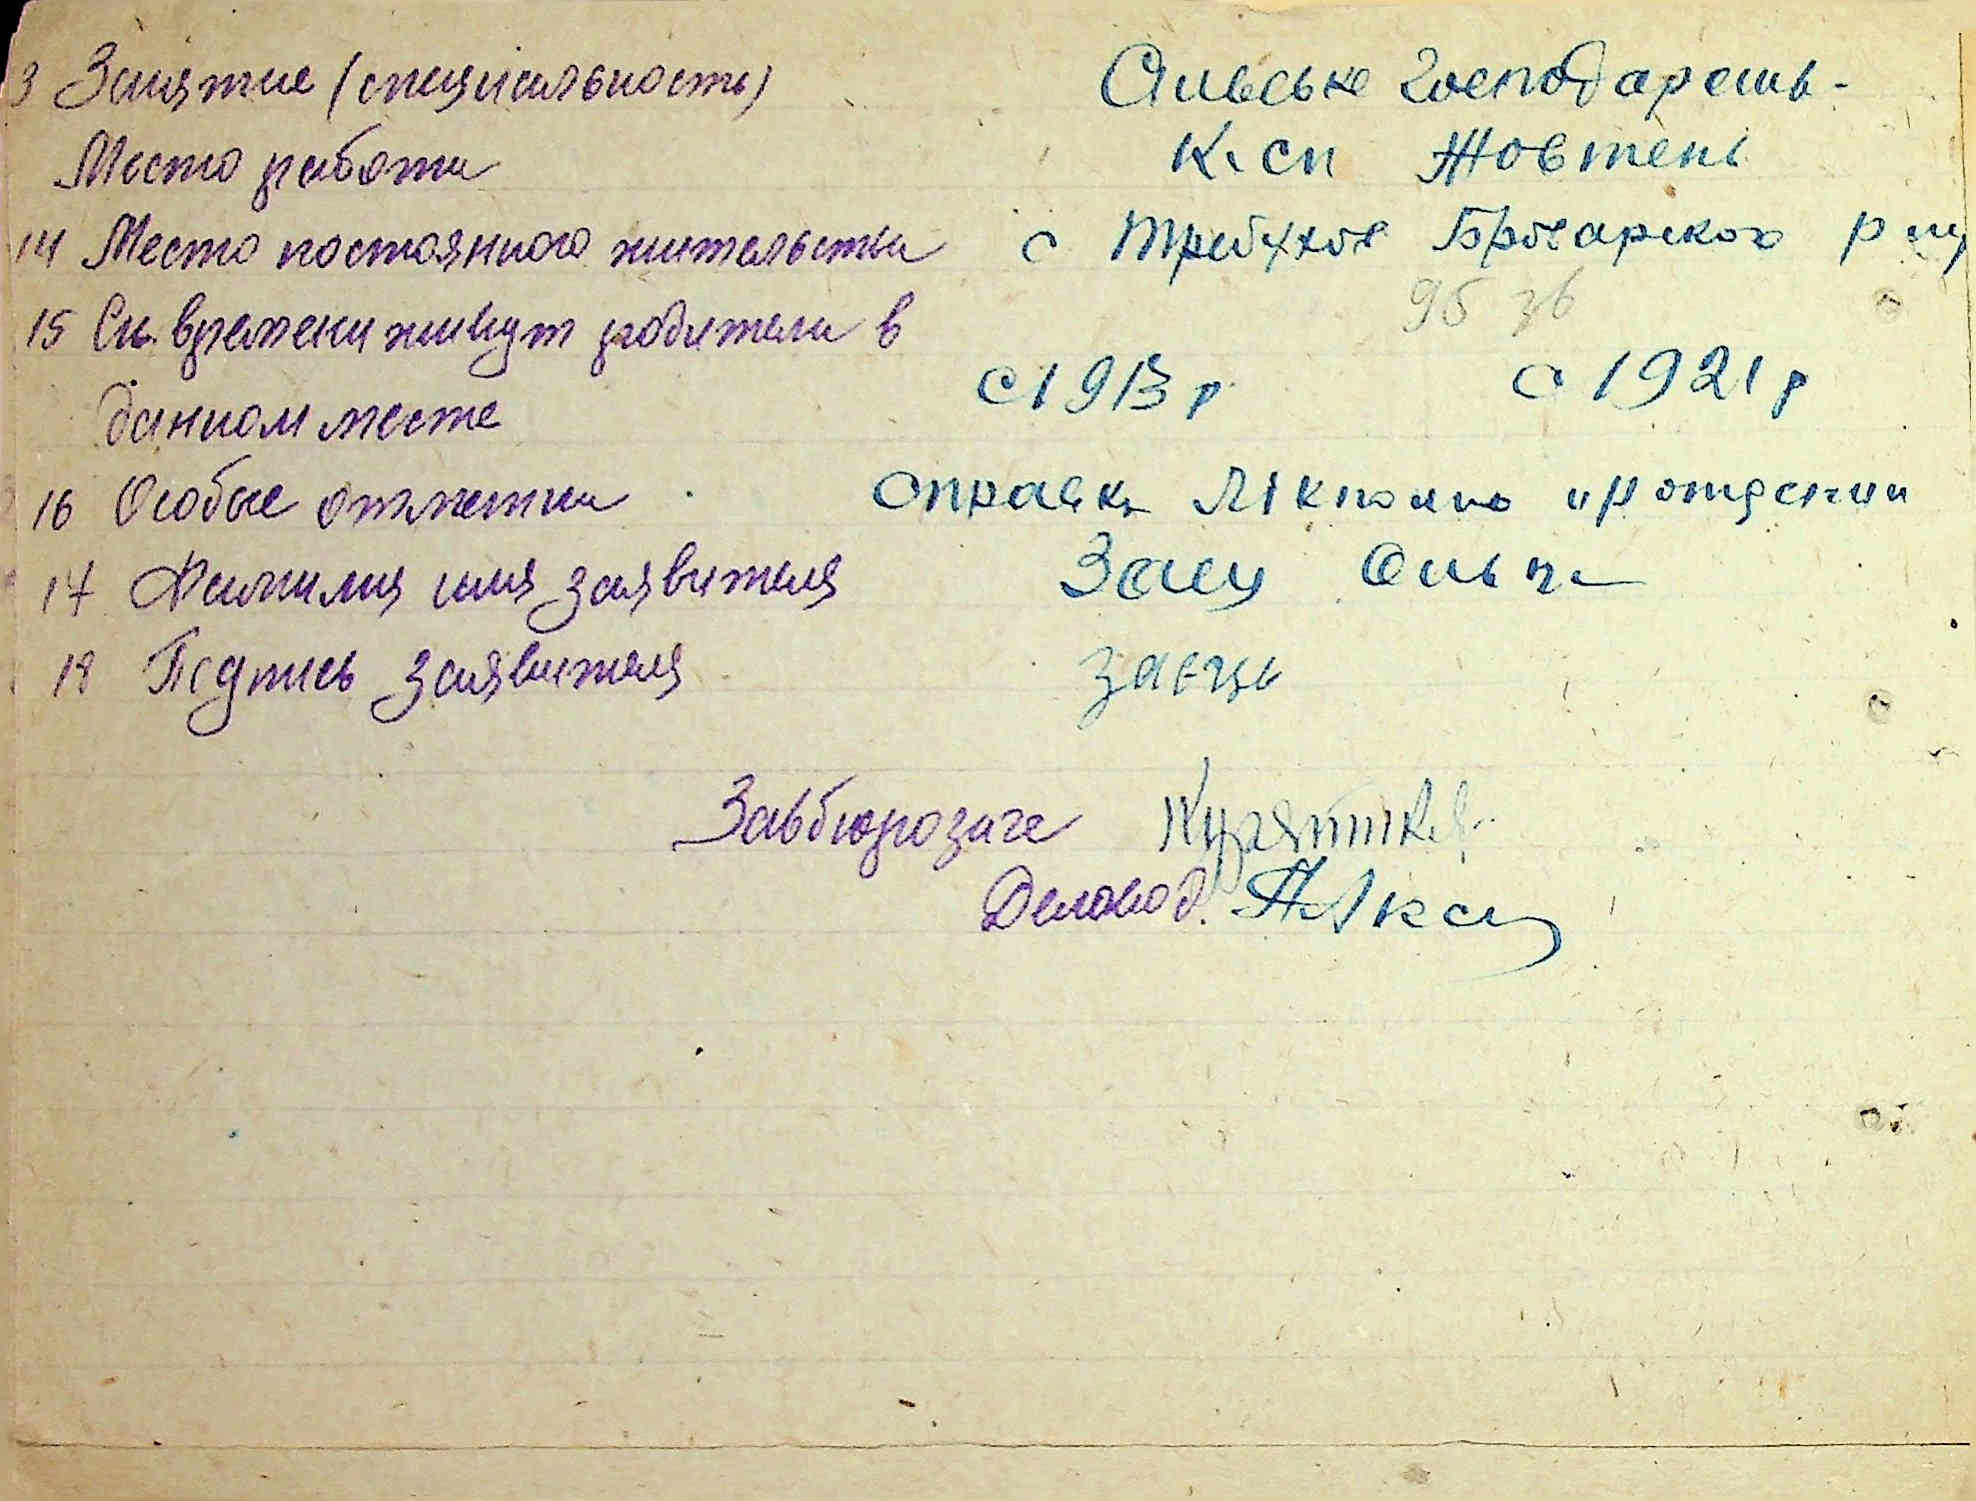 3 Занятие (специальность) Сильське господарств-
Место работы К.сп Жовтень
14 Место постоянного жительства с Требухов Броварского р ну
15 Ск. времени живут родители в
96 зв
данном месте с 1913 р с 1921 р
16 Особые отметки Справка Лікпома о рождении
17 Фамилия имя заявителя Заец Ольга
18 Подпись заявителя Заець
Завбюрозагс
Деловод.